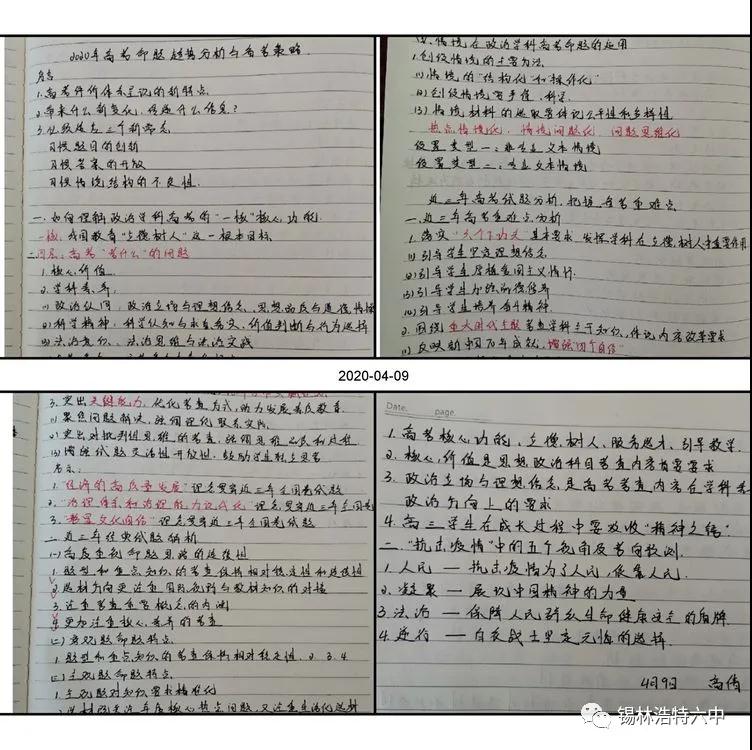 2020年高考命题趋势分析与备考策略
序言
1.高考评价体系呈现的新特点
2.带来什么新变化，传递什么信息?
3.
习惯题目的创新
习惯答案的开放
习惯情境结构的不良性.
一.如何理解政治学科高考的"一核"核心功能.
一核:我国教育"立德树人"这一根本目标
二.四层:高考"考什么"的问题
1.核心价值
2.学科素养:
(1)政治认同:政治立场与理想信念、思想品质与道德情操
(2)科学精神:科学认知与求真务实、价值判断与行为选择
(3)法治意识:法治思维与法治实践
四、情境在政治学科高考命题的运用
1.创设情境的主要方法
(1)情境的"结构化"和"操作化"
(2)创设情境要手值、科学
(3)情境材料的选取要体现公平性和多样性
热点情境化、情境问题化、问题思维化
设置类型一:非专立文本情境
设置类型二:专立文本情境
近三年高考试题分析,把握备考重难点
一.近三年高考重难点分析
1.落实"六个下功夫"基本要求,发挥学科在立德树人中重要作用
(1)引导学生坚定理想信念
(2)引导学生厚植爱国主义情怀
(3)引导学生加强品德修养
(4)引导学生培养奋斗精神
2.围绕重大时代主题考查学科主干知识,体现内容改革要求
(1)反映新中国70年成就,增强"四个自信"
2020-04-09
3.突出关键能力,优化考查方式,助力发展素质教育
(1)聚焦问题解决,强调理论联系实际
(2)突出对批判性思维的考查,强调思维品质和过程
(3)增强试题灵活性开放性,鼓励学生独立思考
启示:
1."经济的高质量发展"理念贯穿近三年全国卷试题
2."治理体系和治理能力现代化"理念贯穿近三年全国卷
3."彰显文化自信"理念贯穿近三年全国卷试题
二.近三年经典试题解析
(一)高度重视命题思路的连续性
1.题型和重点知识的考查保持相对稳定性和连续性
2.选材方向更注重国际视野与教材知识的对接
3.注重考查重要概念的内涵
4.更加注重核心素养的考查
(二)客观题命题特点
1.题型和重点知识的考查保持相对稳定性 2. 3. 4
(三)主观题命题特点
1.主观题对知识要求精准化
Date. page.
1.高考核心功能:立德树人、服务选才、引导教学.
2.核心价值是思想政治科目考查内容首要要求
3.政治立场与理想信念,是高考考查内容在学科素
政治方向上的要求
4.高三学生在成长过程中要攻收"精神之钙".
二."抗击疫情"中的五个视角及考向预测.
1.人民——抗击疫情为了人民,依靠人民.
2.凝聚——展现中国精神的力量
3.法治——保障人民群众生命健康安全的盾牌
4.逆行——白衣战士里
4月9日 高倩
锡林浩特六中